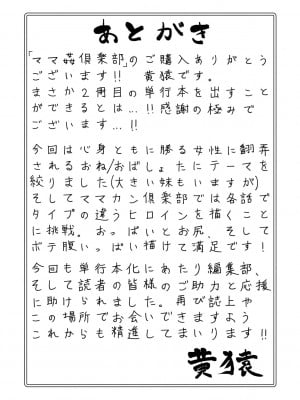 あとがき
「ママ姦倶楽部」のご購入ありがとう
ございます!! 黄猿です。
まさか2冊目の単行本を出すこと
ができるとは…!!感謝の極みで
ございます…!!
今回は心身ともに勝る女性に翻弄
されるおね/おばしょたにテーマを
絞りました(大きい妹もいますが)
そしてママカン倶楽部では各話で
タイプの違うヒロインを描くこと
に挑戦。おっぱいとお尻、そして
ボテ腹いっぱい描けて満足です!
今回も単行本化にあたり編集部、
そして読者の皆様のご助力と応援
に助けられました。再び誌上や
この場所でお会いできますよう
これからも精進してまいります!!
黄猿